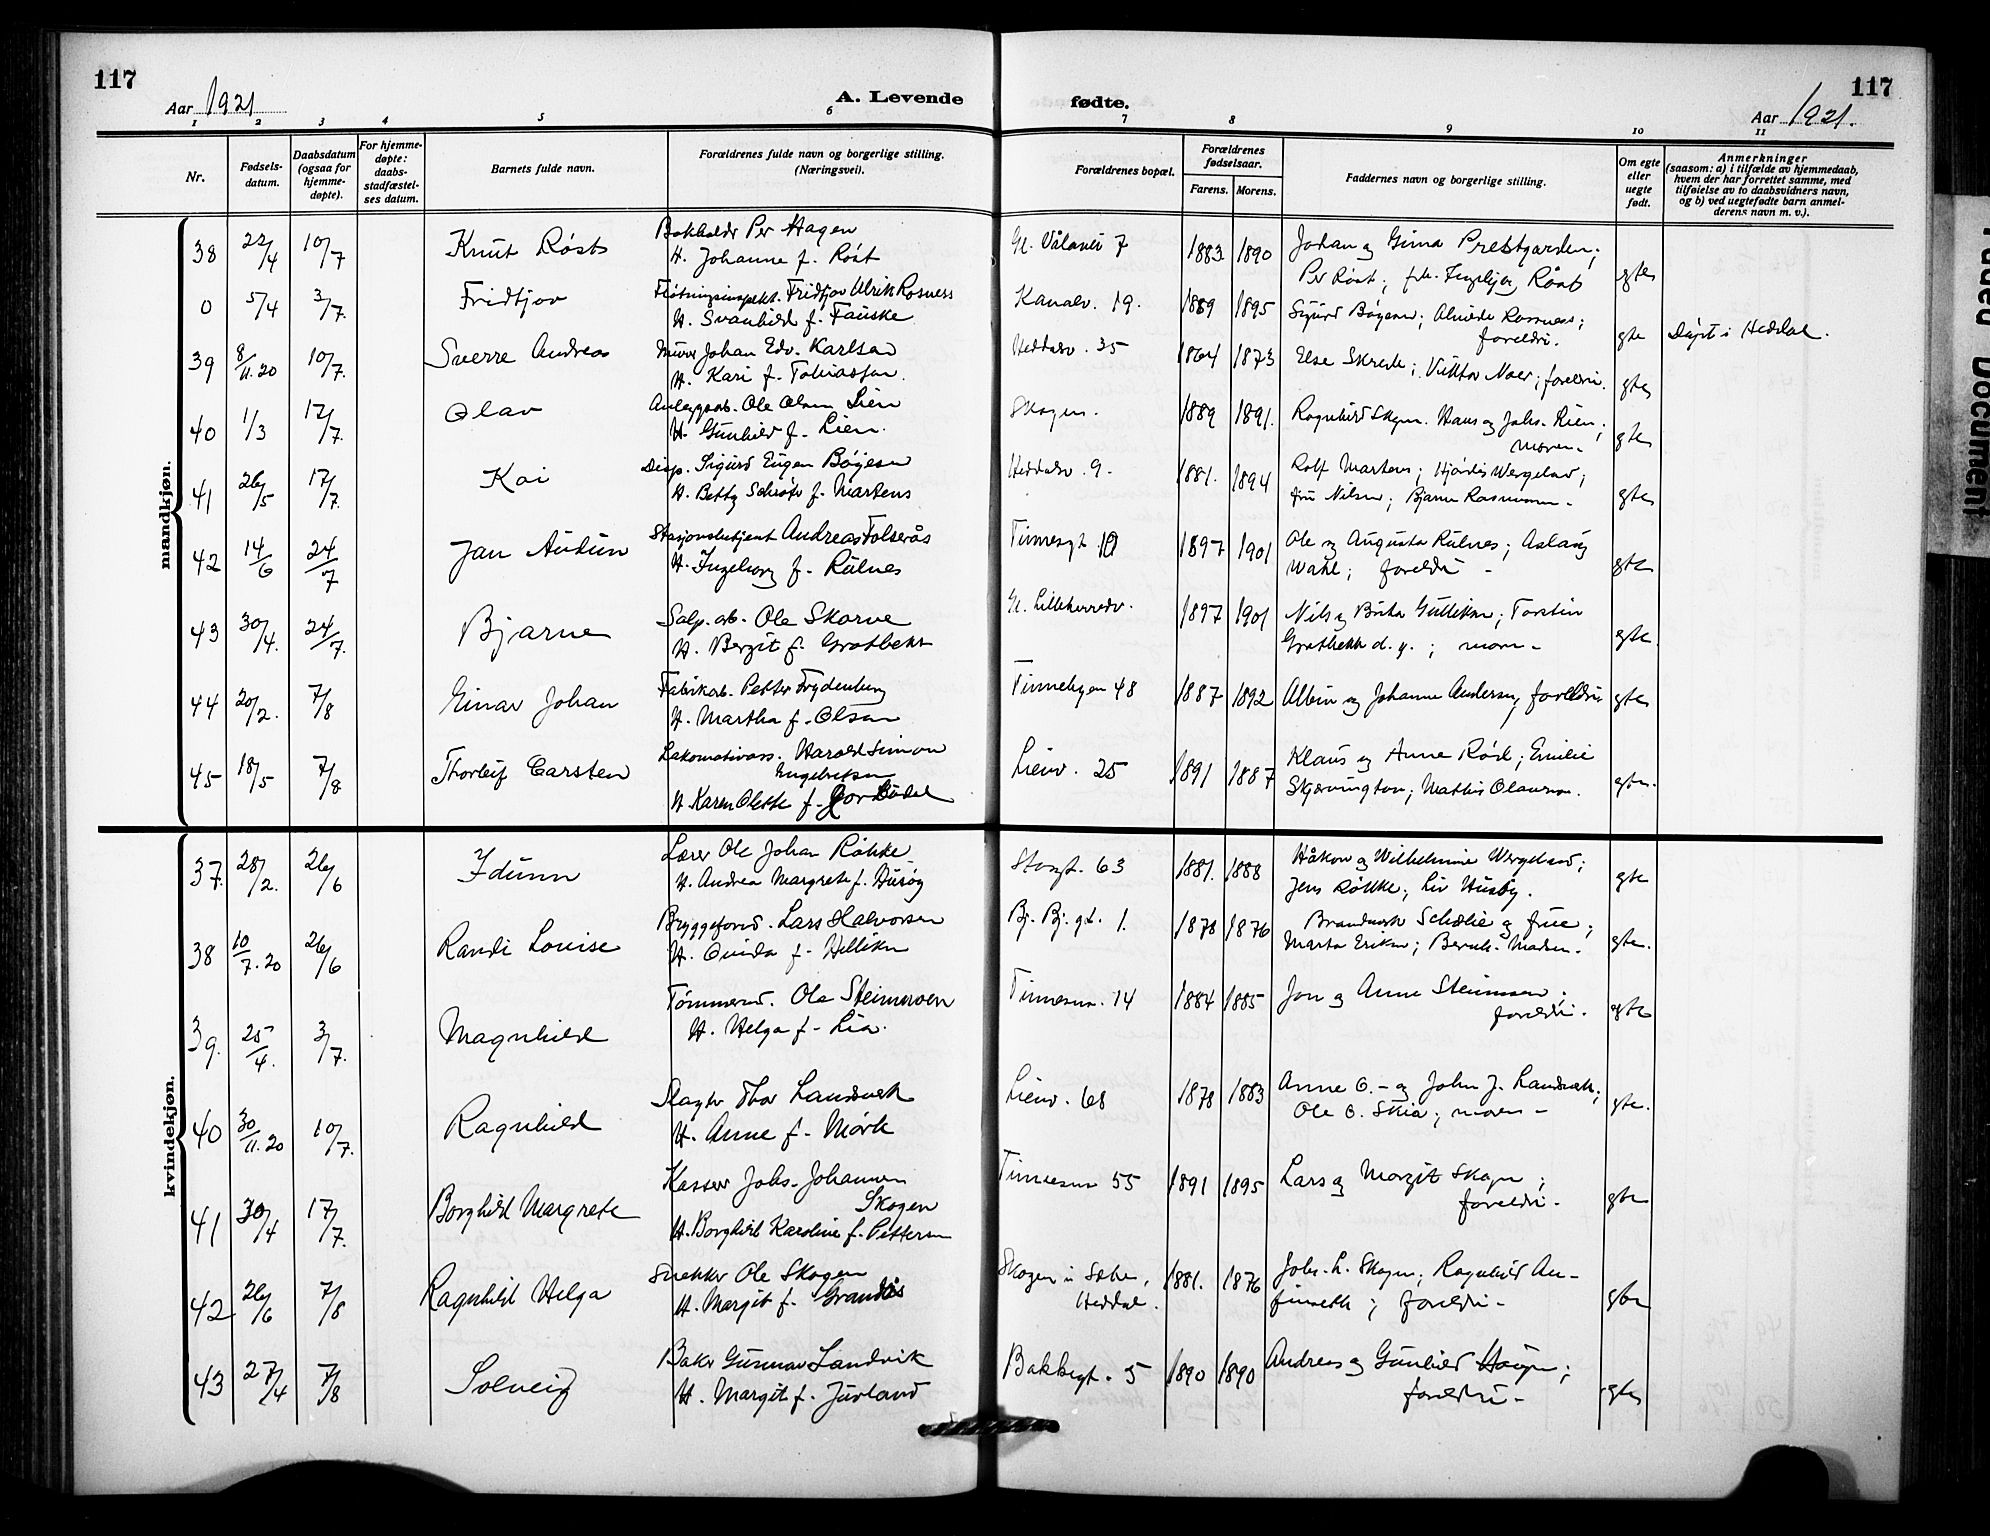 117
Aar 1921
A. Levende
fødte.
117
Aar 1921.
1 2 3 5 6 7 8 9 10 11
Nr.
Fødsels-
datum.
Daabsdatum
(ogsaa for
hjemme-
døpte).
For hjemme-
døpte:
daabs-
stadfæstel-
ses datum.
Barnets fulde navn.
Forældrenes fulde navn og borgerlige stilling.
(Næringsvei).
Forældrenes bopæl.
Forældrenes
fødselsaar.
Farens. Morens.
Faddernes navn og borgerlige stilling.
Om egte
eller
uegte
født.
Anmerkninger
(saasom: a) i tilfælde av hjemmedaab,
hvem der har forrettet samme, med
tilføielse av to daabsvidners navn,
og b) ved uegtefødte barn anmel-
derens navn m. v.).
mandkjøn.
38 22/4 10/7 Knut Røst Bokholder Per Hagen 1883 1890 Johan og Gina Prestgarden;
H. Johanne f. Røst Per Røst; Røst egte
0 5/4 3/7. Fridtjov Fridtjov Ulrik Rosness Kanalv. 19. 1889 1895 Sigurd Bøyesen;
H. Svanhild f. Fauske foreldri. egte Døpt i Heddal.
39 8/11.20 10/7. Sverre Andreas Murer Johan Edv. Karlsen Heddalsv. 35 1864 1873 Else Skrede; foreldri.
H. Kari f. Tobiassen. egte
40 1/3 17/7. Olav Ole Olsen Lien Skogen. 1889 1891. Ragnhild Skogen. Hans og Johs. Lien;
H. Gunhild f. Lien. moren. egte
41 26/5 17/7. Kai Disp. Sigurd Eugen Bøyesen Heddalsv. 9. 1881. 1894 Rolf Martens; Hjørdis Wergeland;
H. Betty Schrøter f. Martens fru Nilsen; Bjarne Rasmussen. egte
42 14/6 24/7 Jan Audun Stasjonsbetjent Andreas Folserås Tinnesgt 10 1897 1901 Ole og Augusta Rulnes; Aslaug
H. Ingeborg f. Rulnes Wahl; foreldri egte
43 30/4. 24/7. Bjarne Salp. arb. Ole Skarve 1897 1901 Nils og Gulliksen; Torstein
H. Bergit f. Grotbekk Grotbekk d. y.; moren egte
44 20/2. 7/8 Einar Johan Fabrikarb. Petter Frydenberg Tinnebyen 48 1887 1892 Albin og Johanne Andersen, foreldri egte
H. Martha f. Olsen
45 18/5 7/8 Thorleif Carsten Lokomotivass. Harald Simon Lienv. 25 1891 1887 Klaus og Anne Rød; Emilie
Engebretsen
H. Karen Olette f. Skjevington; Mathis Olaussen. egte.
kvindekjøn.
37. 28/2. 26/6 Idunn Lærer Ole Johan Røkke Storgt. 63 1881. 1888 Håkon og Wilhelmine Wergeland;
H. Andrea Margrete f. Jens Røkke; Liv Husby. egte
38 10/7.20 26/6 Randi Louise Bryggeform. Lars Halvorsen Bj. Bj. gt. 1. 1878 1876 Schælie og frue;
H. f. Marta Eriksen; Madsen. egte.
39. 25/4. 3/7. Magnhild Ole Steimoen Tinnesm. 14 1884 1885 Jon og Anne
H. Helga f. Lia. foreldri. egte
40 30/11.20 10/7. Ragnhild Slagter Thor Landverk Lienv. 68 1878 1883 Anne O. og John J. Landverk;
H. Anne f. Mørk Ole O. Skia; moren egte.
41 30/4 17/7. Borghild Margrete Kasser Johs. Johannsen Tinnesm 55 1891 1895 Lars og Margit Skogen;
Skogen foreldri. egte
H. Borghild Karoline f. Pettersen
42 26/6 7/8 Ragnhild Helga Snekker Ole Skogen Skogen i Sebu, 1881. 1876 Johs. L. Skogen; Ragnhild
H. Margit f. Grandås Heddal. foreldri egte
43 27/4 7/8 Solveig Baker Gunnar Landvik Bakkegt. 5 1890 1890 Andreas og Gunhild Haugen;
H. Margit f. Juvland foreldri egte
Tilted Document